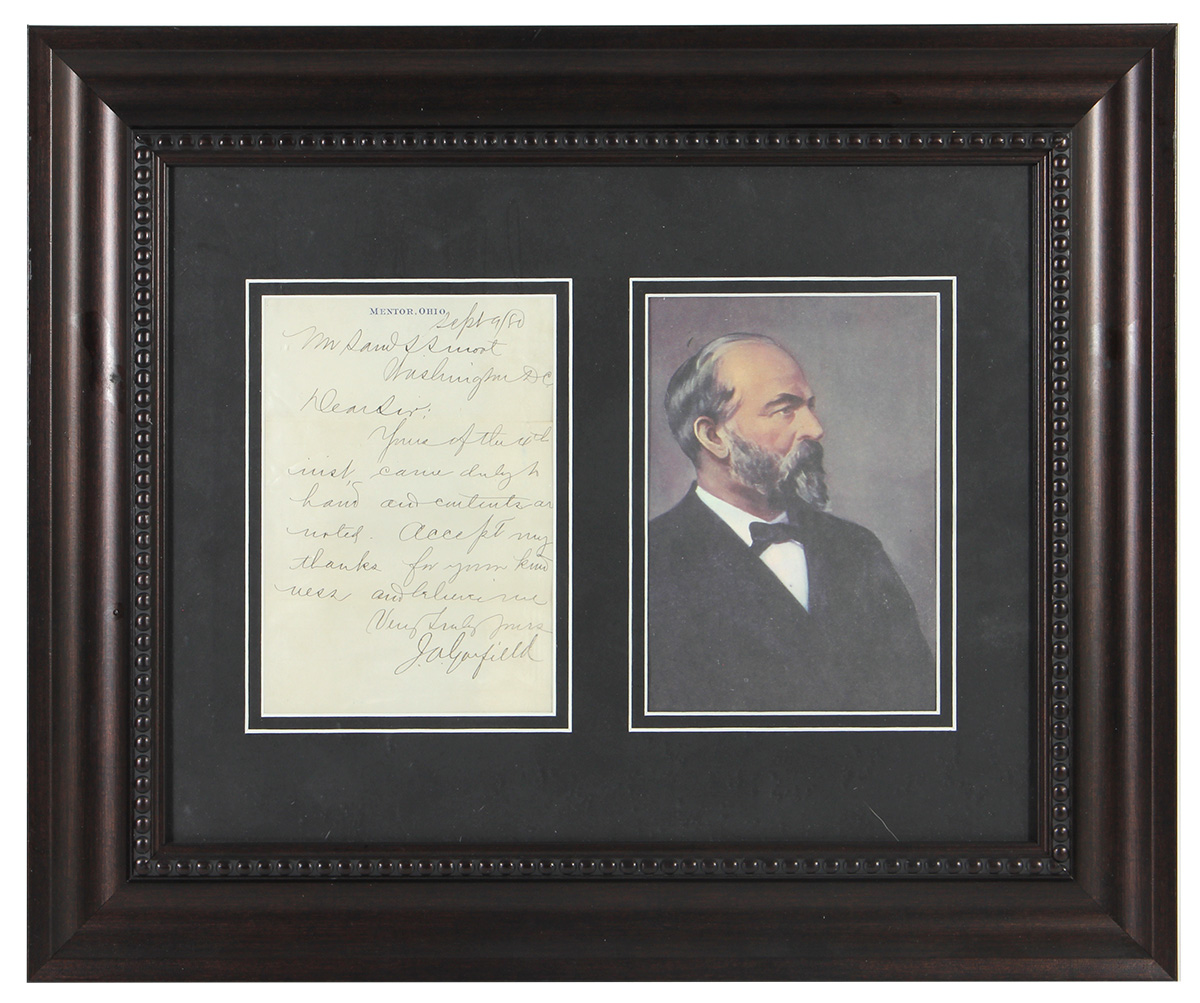 MENTOR, OHIO.
Sept 9/80
Mr Saml S. Smoot
Washington D.C.
Dear Sir:
Yours of the
inst, came duly to
hand and contents are
noted. Accept my
thanks for your kind
ness and believe me
Very Truly Yours
J. A. Garfield